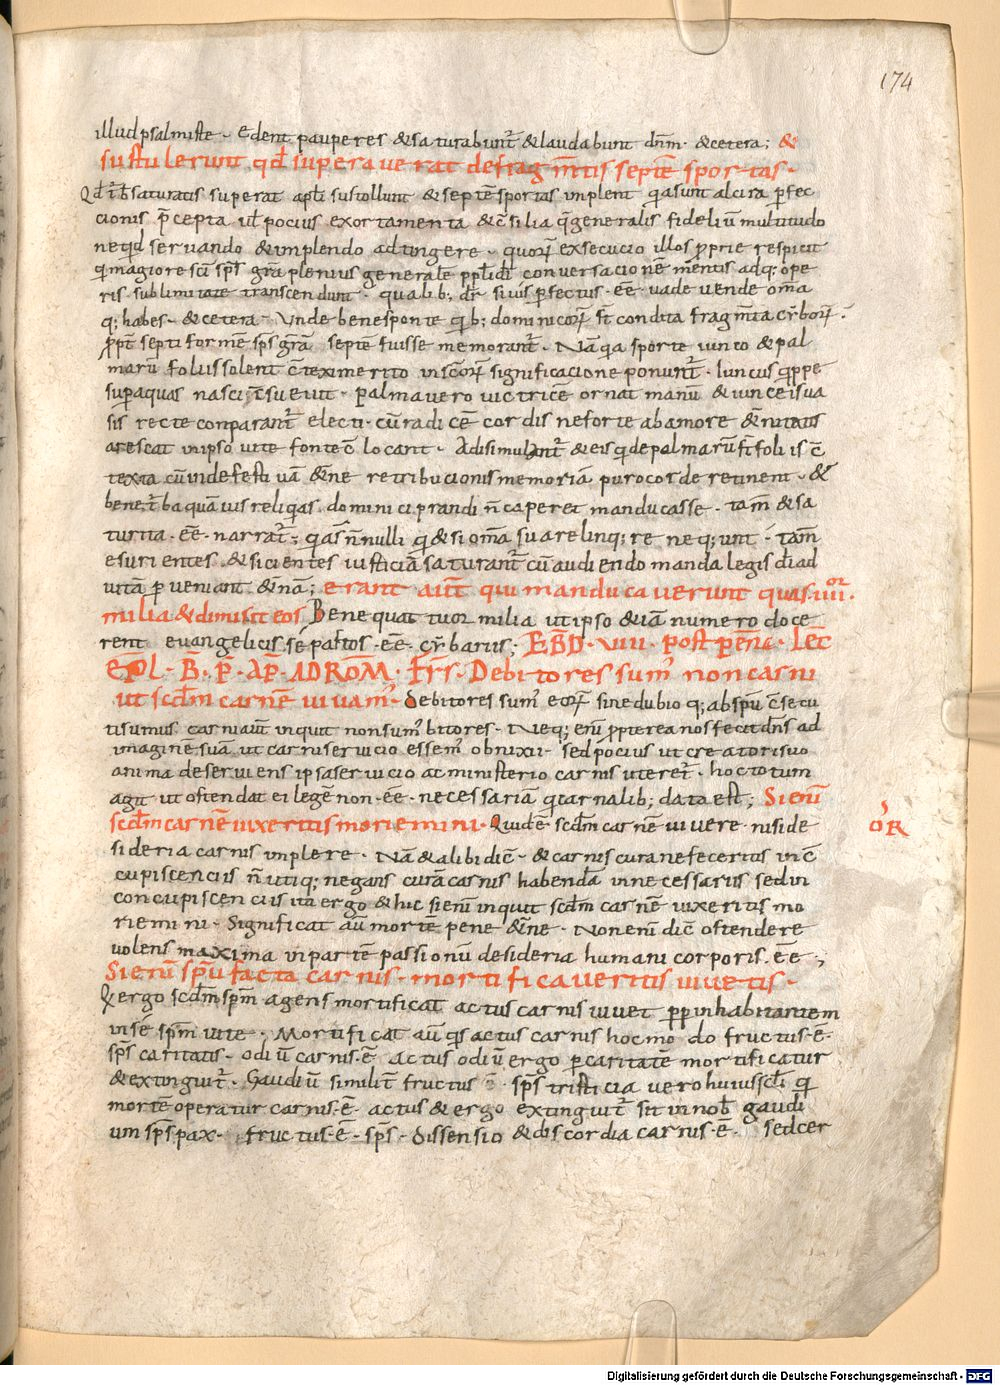 174
illud psalmiste · Edent pauperes & saturabunt̄ & laudabunt dn̄m · & cetera; &
sustulerunt qd̄ superauerat de fragm̄tis septē sportas ·
Qd̄ t̄b saturatis superat apłi sustollunt & septē sportas inplent quia sunt alcira p̄fec
cionis p̄cepta ul̄ pocius exortamenta & c̄silia q̄ generalis fideliū multitudo
nequid seruando & implendo adtingere · quoꝝ exsecucio illos proprie respicit
qi magiore scī sp̄s grā plenius generalē ppl̄i dī conuersacionē mentis adq; ope
ris · sublimitate transcendunt · qualib; dr̄ si uis p̄fectus · ēē uade uende om̄a
q; habes · & cetera · Unde bene sponte quib; dominicoꝝ st̄ condita fragm̄ta cyboꝝ ·
propt̄ septiformē sp̄s grā septē fuisse memorant̄ · Nā qia sporte iunco & pal
marū foliis solent c̄texi merito in sc̄oꝝ significacione ponunt̄ · Iuncus quippe
sup aquas nasci c̄sueuit · palma uero uictricē ornat manū & iunceis ua
sis recte conparant̄ electi · cū radicē cordis ne forte ab amore &n̄itatis
arescat in ipso uite fonte c̄locant · Adsimulant̄ & eis qi de palmarū foliis c̄
texta cū indefectiuā & n̄e retribucionis memoriā puro corde retinent · &
bene t̄ba quāuis reliqias dominici prandi n̄ caperet manducasse · tam̄ & sa
turita · ēē · narrat̄ · qias n̄nulli qi & si om̄a sua relinq;re neq;unt · tam̄
esurientes & sicientes iusticiā saturant̄ cū audiendo mandalegis dī ad
uitā p̄ueniant &n̄ā; erant aut̄ qui manducauerunt quasi · iiii or ·
milia & dimisit eos Bene quattuor milia ut ipso &iā numero doce
rent euangelicis se pastos · ēē · cybariis; EBD · VIII · post pen̄t · lec̄
Ep̄l · B̄ · P̄ · AP̄ · AD ROM̄ · Fr̄s · Debitores sum̄ non carni
ut scd̄m carnē uiuam̄ · Debitores sum̄ eoꝝ sine dubio q; ab sp̄u c̄secu
ti sumus carni aut̄ inquit non sum̄ bitores · Neq; eni propterea nos fecit dn̄s ad
imaginē suā ut carni seruicio essem̄ obnixii · sed pocius ut creatori suo
anima deseruiens ipsa seruicio atministerio carnis uteret̄ · hoc totum
agit ut ostendat ei legē non · ēē · necessariā qi carnalib; data est; Si enī
scd̄m carnē uixeritis moriemini · Quidē scd̄m carnē uiuere nisi de
OR
sideria carnis inplere · Nā & alibi dic̄ · & carnis cura ne feceritis in c̄
cupiscenciis n̄ utiq; negans curā carnis habendā in necessariis sed in
concupiscenciis ita ergo & hic si enī inquit scd̄m carnē uixeritis mo
riemini · Significat aū mortē pene &n̄e · Non enī dic̄ ostendere
uolens maxima in partē passionū desideria humani corporis · ēē ;
Si enī sp̄u facta carnis · mortificaueritis uiuetis ·
Q ergo scd̄m sp̄m agens mortificat actus carnis uiuet pp̄ inhabitantem
in se sp̄m uite · Mortificat aū qis actus carnis hoc modo fructus · ē ·
sp̄s caritatis · odiū carnis · ē · actus odiū ergo p̄ caritatē mortificatur
& extinguit̄ · Gaudiū similit̄ fructus ē · sp̄s tristicia uero huius scl̄i qi
mortē operatur carnis · ē · actus & ergo extinguit̄ sit in nob̄ gaudi
um sp̄s pax · fructus · ē · sp̄s · dissensio & discordia carnis · ē · sed cer
Digitalisierung gefördert durch die Deutsche Forschungsgemeinschaft - DFG